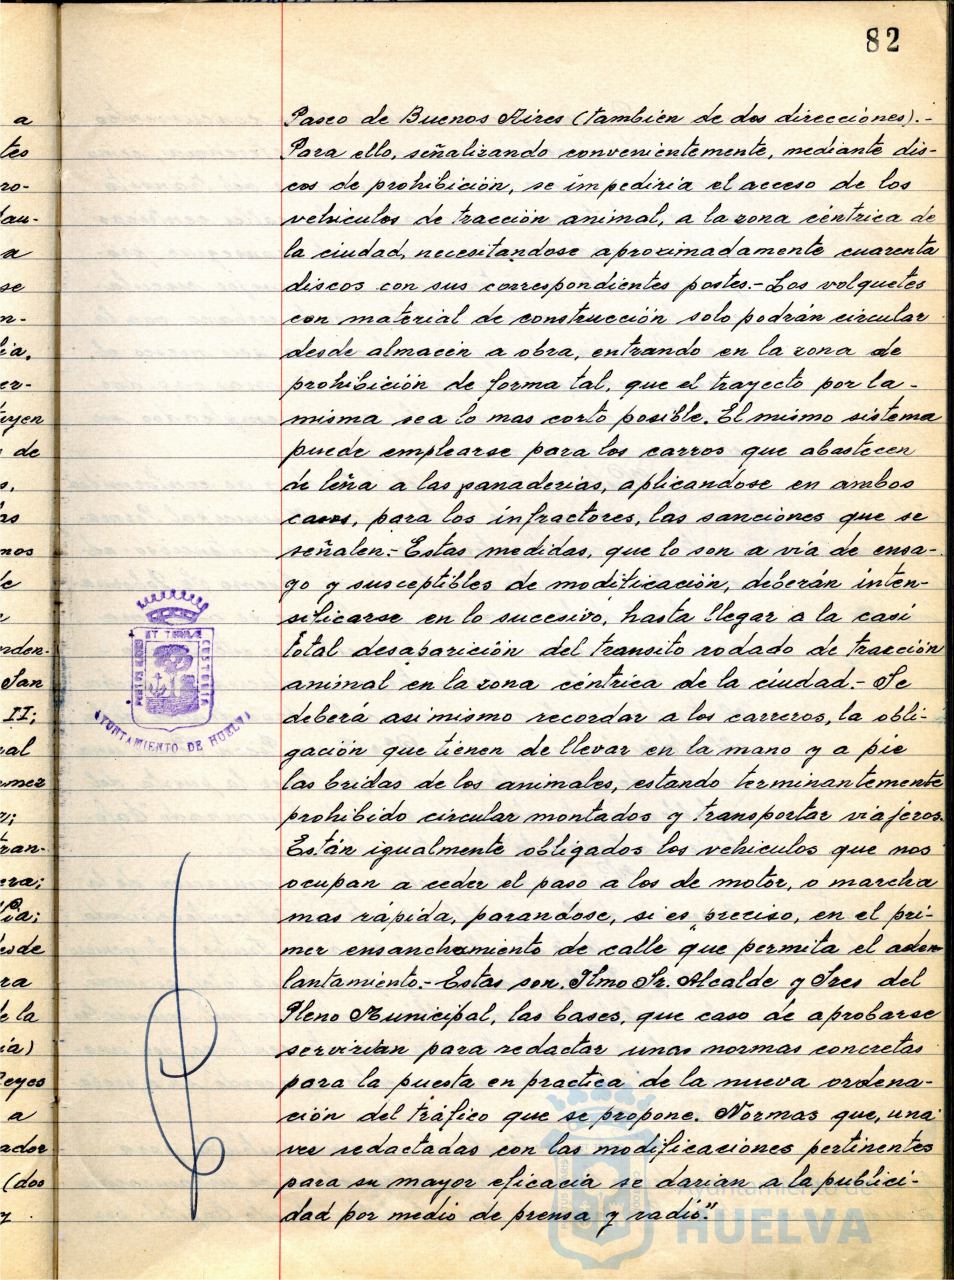 82
Paseo de Buenos Aires (también de dos direcciones).-
Para ello, señalizando convenientemente, mediante dis-
cos de prohibición, se impediria el acceso de los
vehiculos de tracción animal, a la zona céntrica de
la ciudad, necesitandose aproximadamente cuarenta
discos con sus correspondientes postes.- Los volquetes
con material de construcción solo podrán circular
desde almacén a obra, entrando en la zona de
prohibición de forma tal, que el trayecto por la-
misma sea lo mas corto posible. El mismo sistema
puede emplearse para los carros que abastecen
de leña a las panaderias, aplicandose en ambos
casos, para los infractores, las sanciones que se
señalen.- Estas medidas, que lo son a via de ensa-
yo y susceptibles de modificación, deberán inten-
sificarse en lo sucesivo, hasta llegar a la casi
total desaparición del transito rodado de tracción
animal en la zona céntrica de la ciudad.- Se
deberá asimismo recordar a los carreros, la obli-
gación que tienen de llevar en la mano y a pie
las bridas de los animales, estando terminantemente
prohibido circular montados y transportar viajeros.
Están igualmente obligados los vehiculos que nos
ocupan a ceder el paso a los de motor, o marcha
mas rápida, parandose, si es preciso, en el pri-
mer ensanchamiento de calle que permita el ade-
lantamiento.- Estas son. Ilmo Sr. Alcalde y Sres del
Pleno Municipal, las bases, que caso de aprobarse
servirian para redactar unas normas concretas
para la puesta en practica de la nueva ordena-
ción del tráfico que se propone. Normas que, una
vez redactadas con las modificaciones pertinentes
para su mayor eficacia se darian a la publici-
dad por medio de prensa y radio."
AYUNTAMIENTO DE HUELVA
Ayuntamiento de
HUELVA